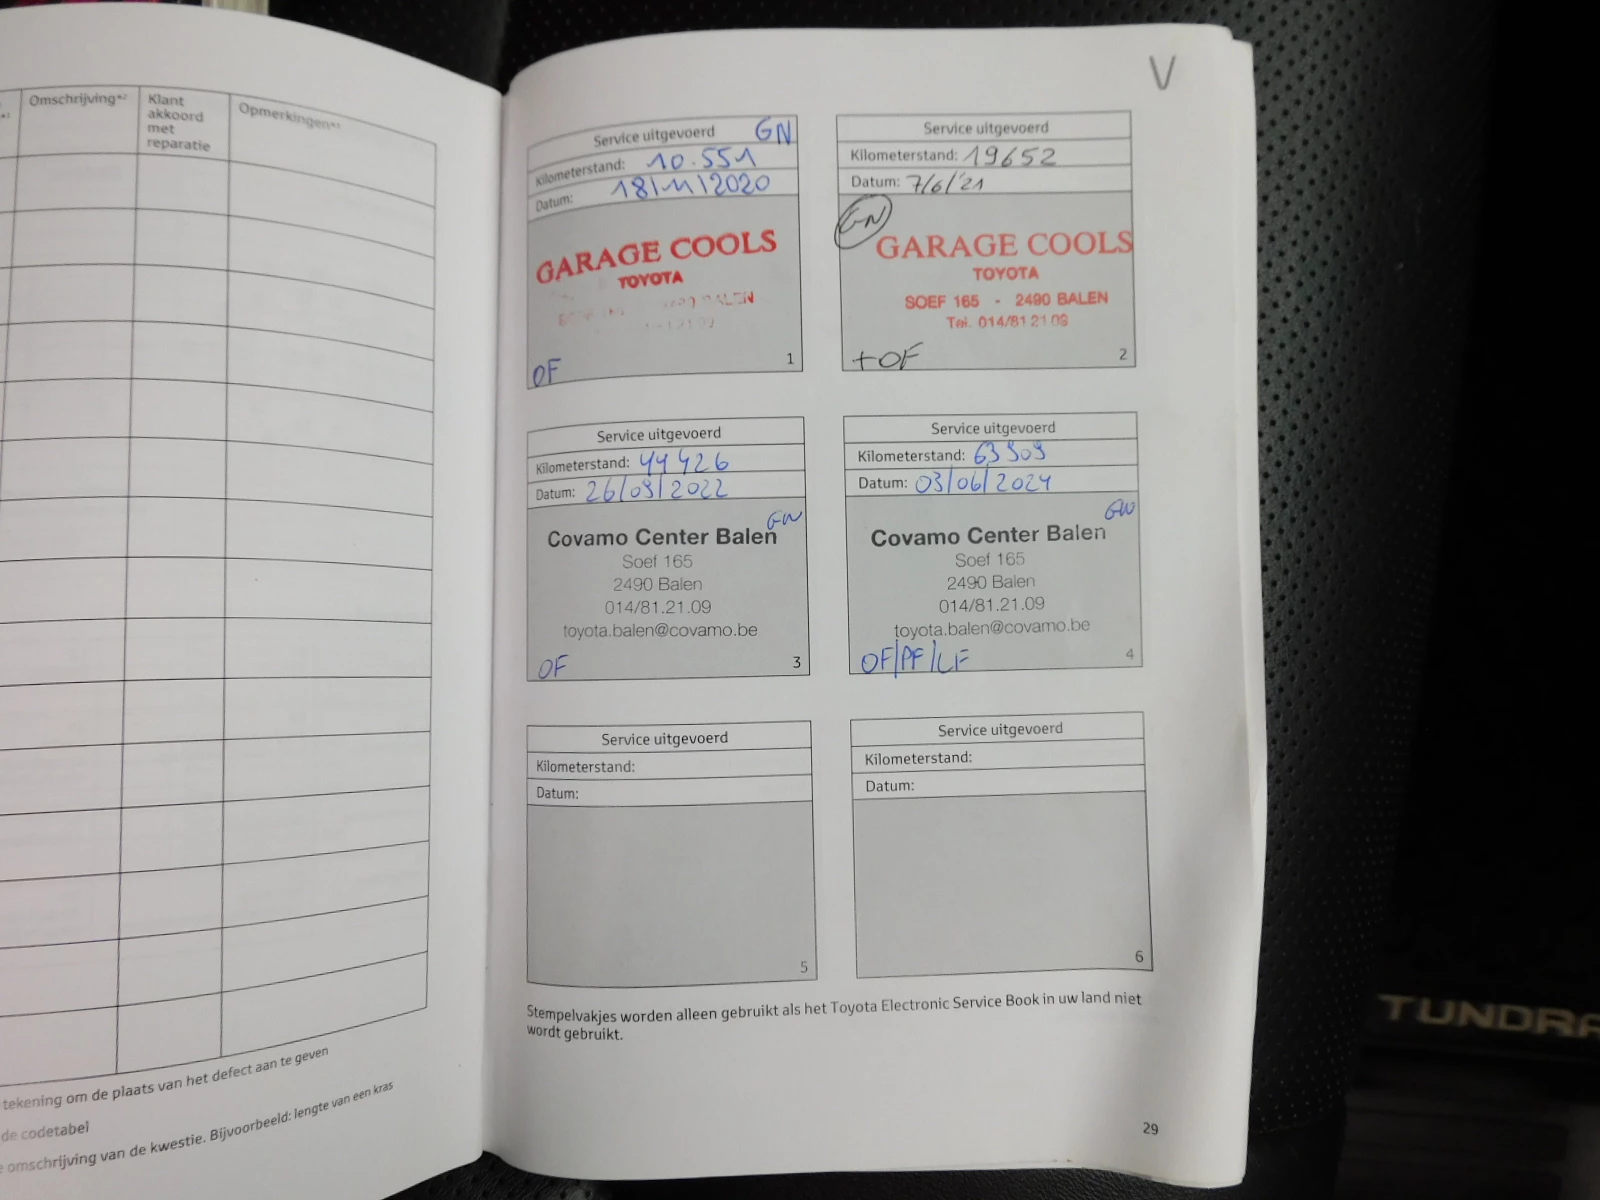 Omschrijving*²
Klant
akkoord
met
reparatie
Opmerkingen*³
tekening om de plaats van het defect aan te geven
de codetabel
omschrijving van de kwestie. Bijvoorbeeld: lengte van een kras
V
Service uitgevoerd GN
Kilometerstand: 10.551
Datum: 18/11/2020
GARAGE COOLS
TOYOTA
BALEN
OF
1
Service uitgevoerd
Kilometerstand: 19652
Datum: 7/6/'21
GN
GARAGE COOLS
TOYOTA
SOEF 165 - 2490 BALEN
Tel. 014/81 21 09
+OF
2
Service uitgevoerd
Kilometerstand: 44426
Datum: 26/09/2022
GN
Covamo Center Balen
Soef 165
2490 Balen
014/81.21.09
toyota.balen@covamo.be
OF
3
Service uitgevoerd
Kilometerstand: 63909
Datum: 03/06/2024
GN
Covamo Center Balen
Soef 165
2490 Balen
014/81.21.09
toyota.balen@covamo.be
OF/PF/LF
4
Service uitgevoerd
Kilometerstand:
Datum:
5
Service uitgevoerd
Kilometerstand:
Datum:
6
Stempelvakjes worden alleen gebruikt als het Toyota Electronic Service Book in uw land niet
wordt gebruikt.
29
TUNDRA